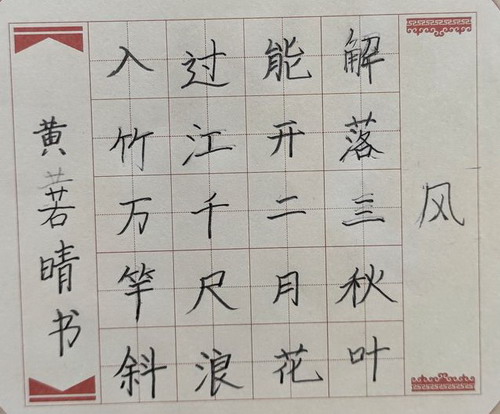 风
解落三秋叶
能开二月花
过江千尺浪
入竹万竿斜
黄若晴书